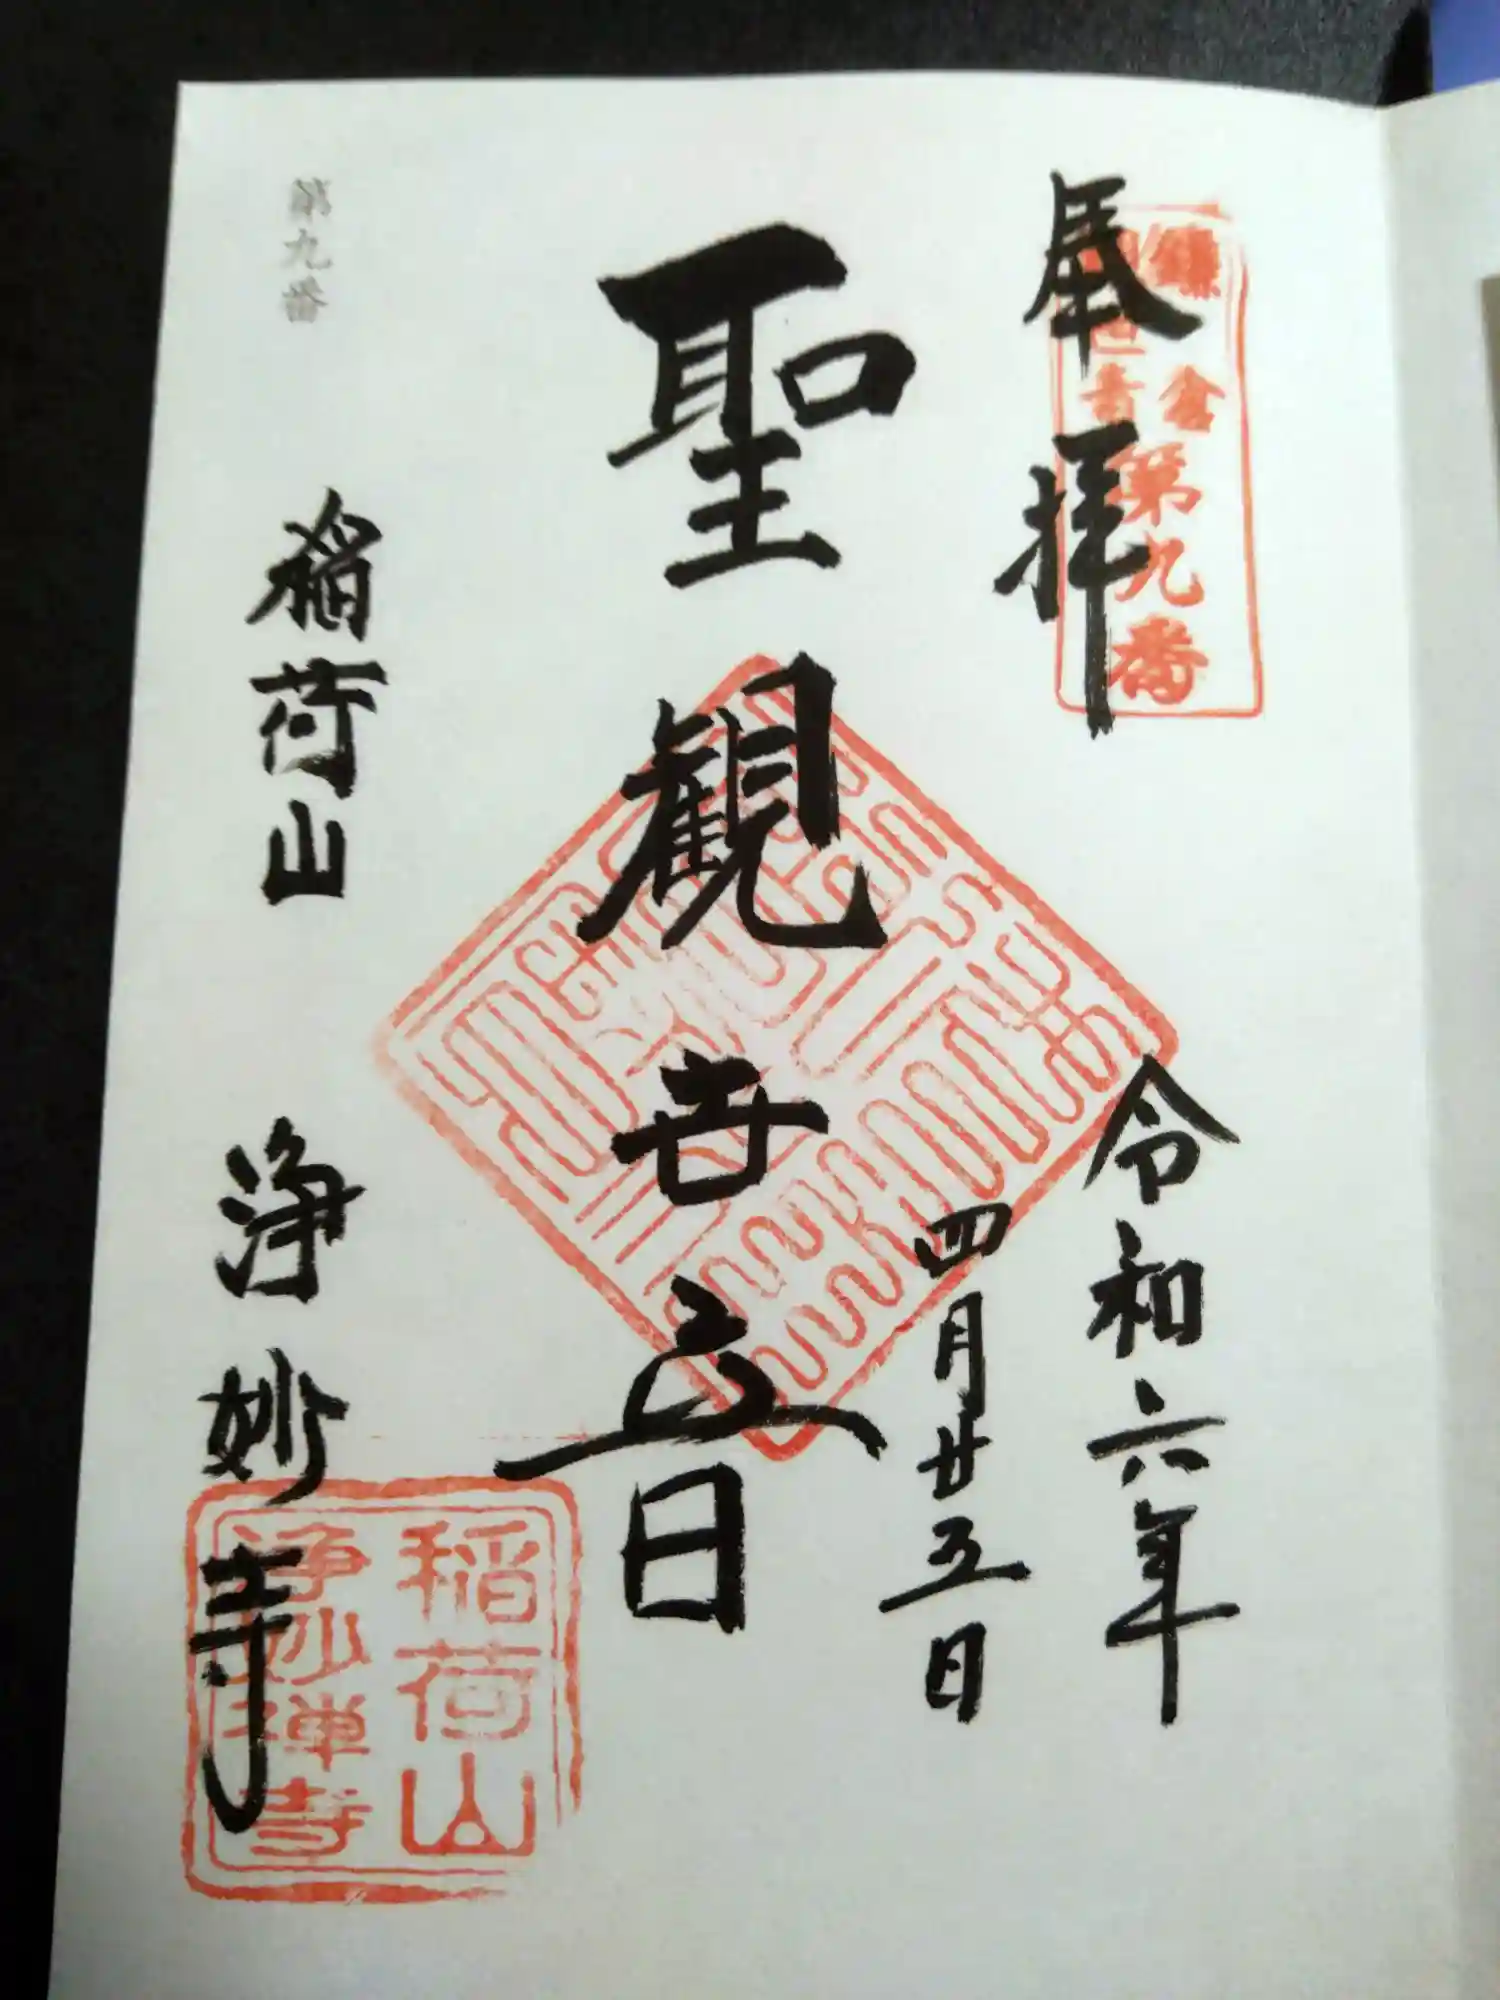 奉拝
鎌倉
世音
第九番
令和六年
四月廿五日
聖観世音
稲荷山 浄妙寺
稲荷山
浄妙禅寺
第九番